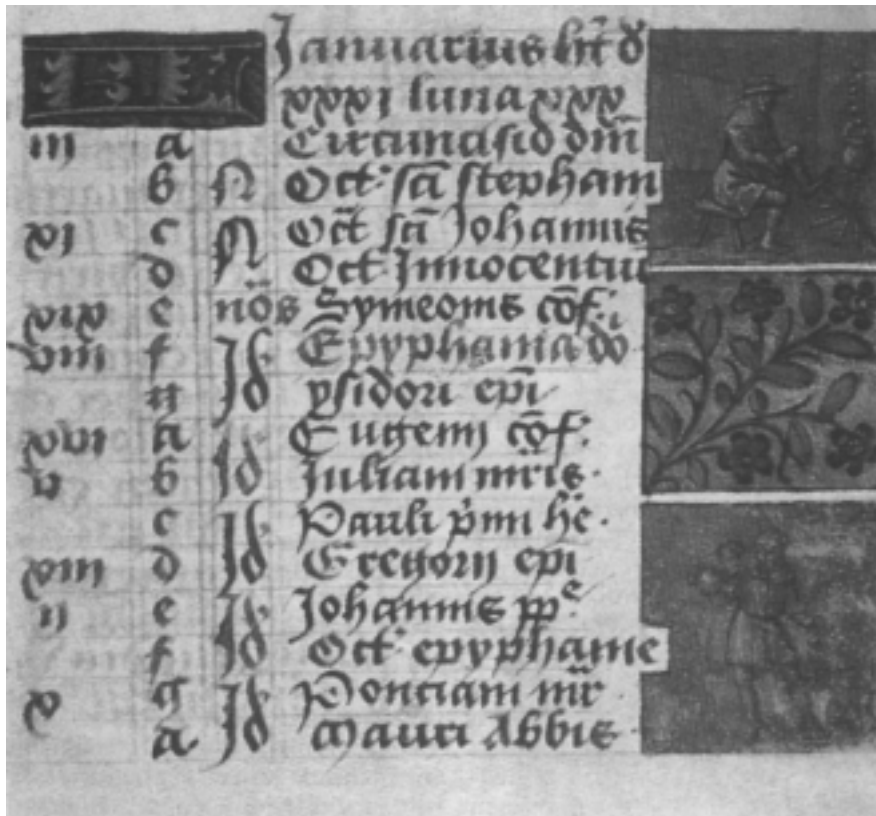 Januarius hēt d
xxxi luna xxx
iii a Circuncisio dm̄
b N Oct. scī stephani
xi c N Oct̄ scī Johannis
d N Oct. Innocentiū
xix e nōs Symeonis cōf.
viii f Id Epyphania do
g Id ysidori epī
xvi a Id Eugenij cōf.
v b Id Iuliani mr̄is.
c Id Pauli pīmi hē.
xiii d Id Gregorij epi
ii e Id Johannis pp̄e
f Id Oct. epyphanie
x g Id Ponciani mr̄
a Id Mauri Abbis.